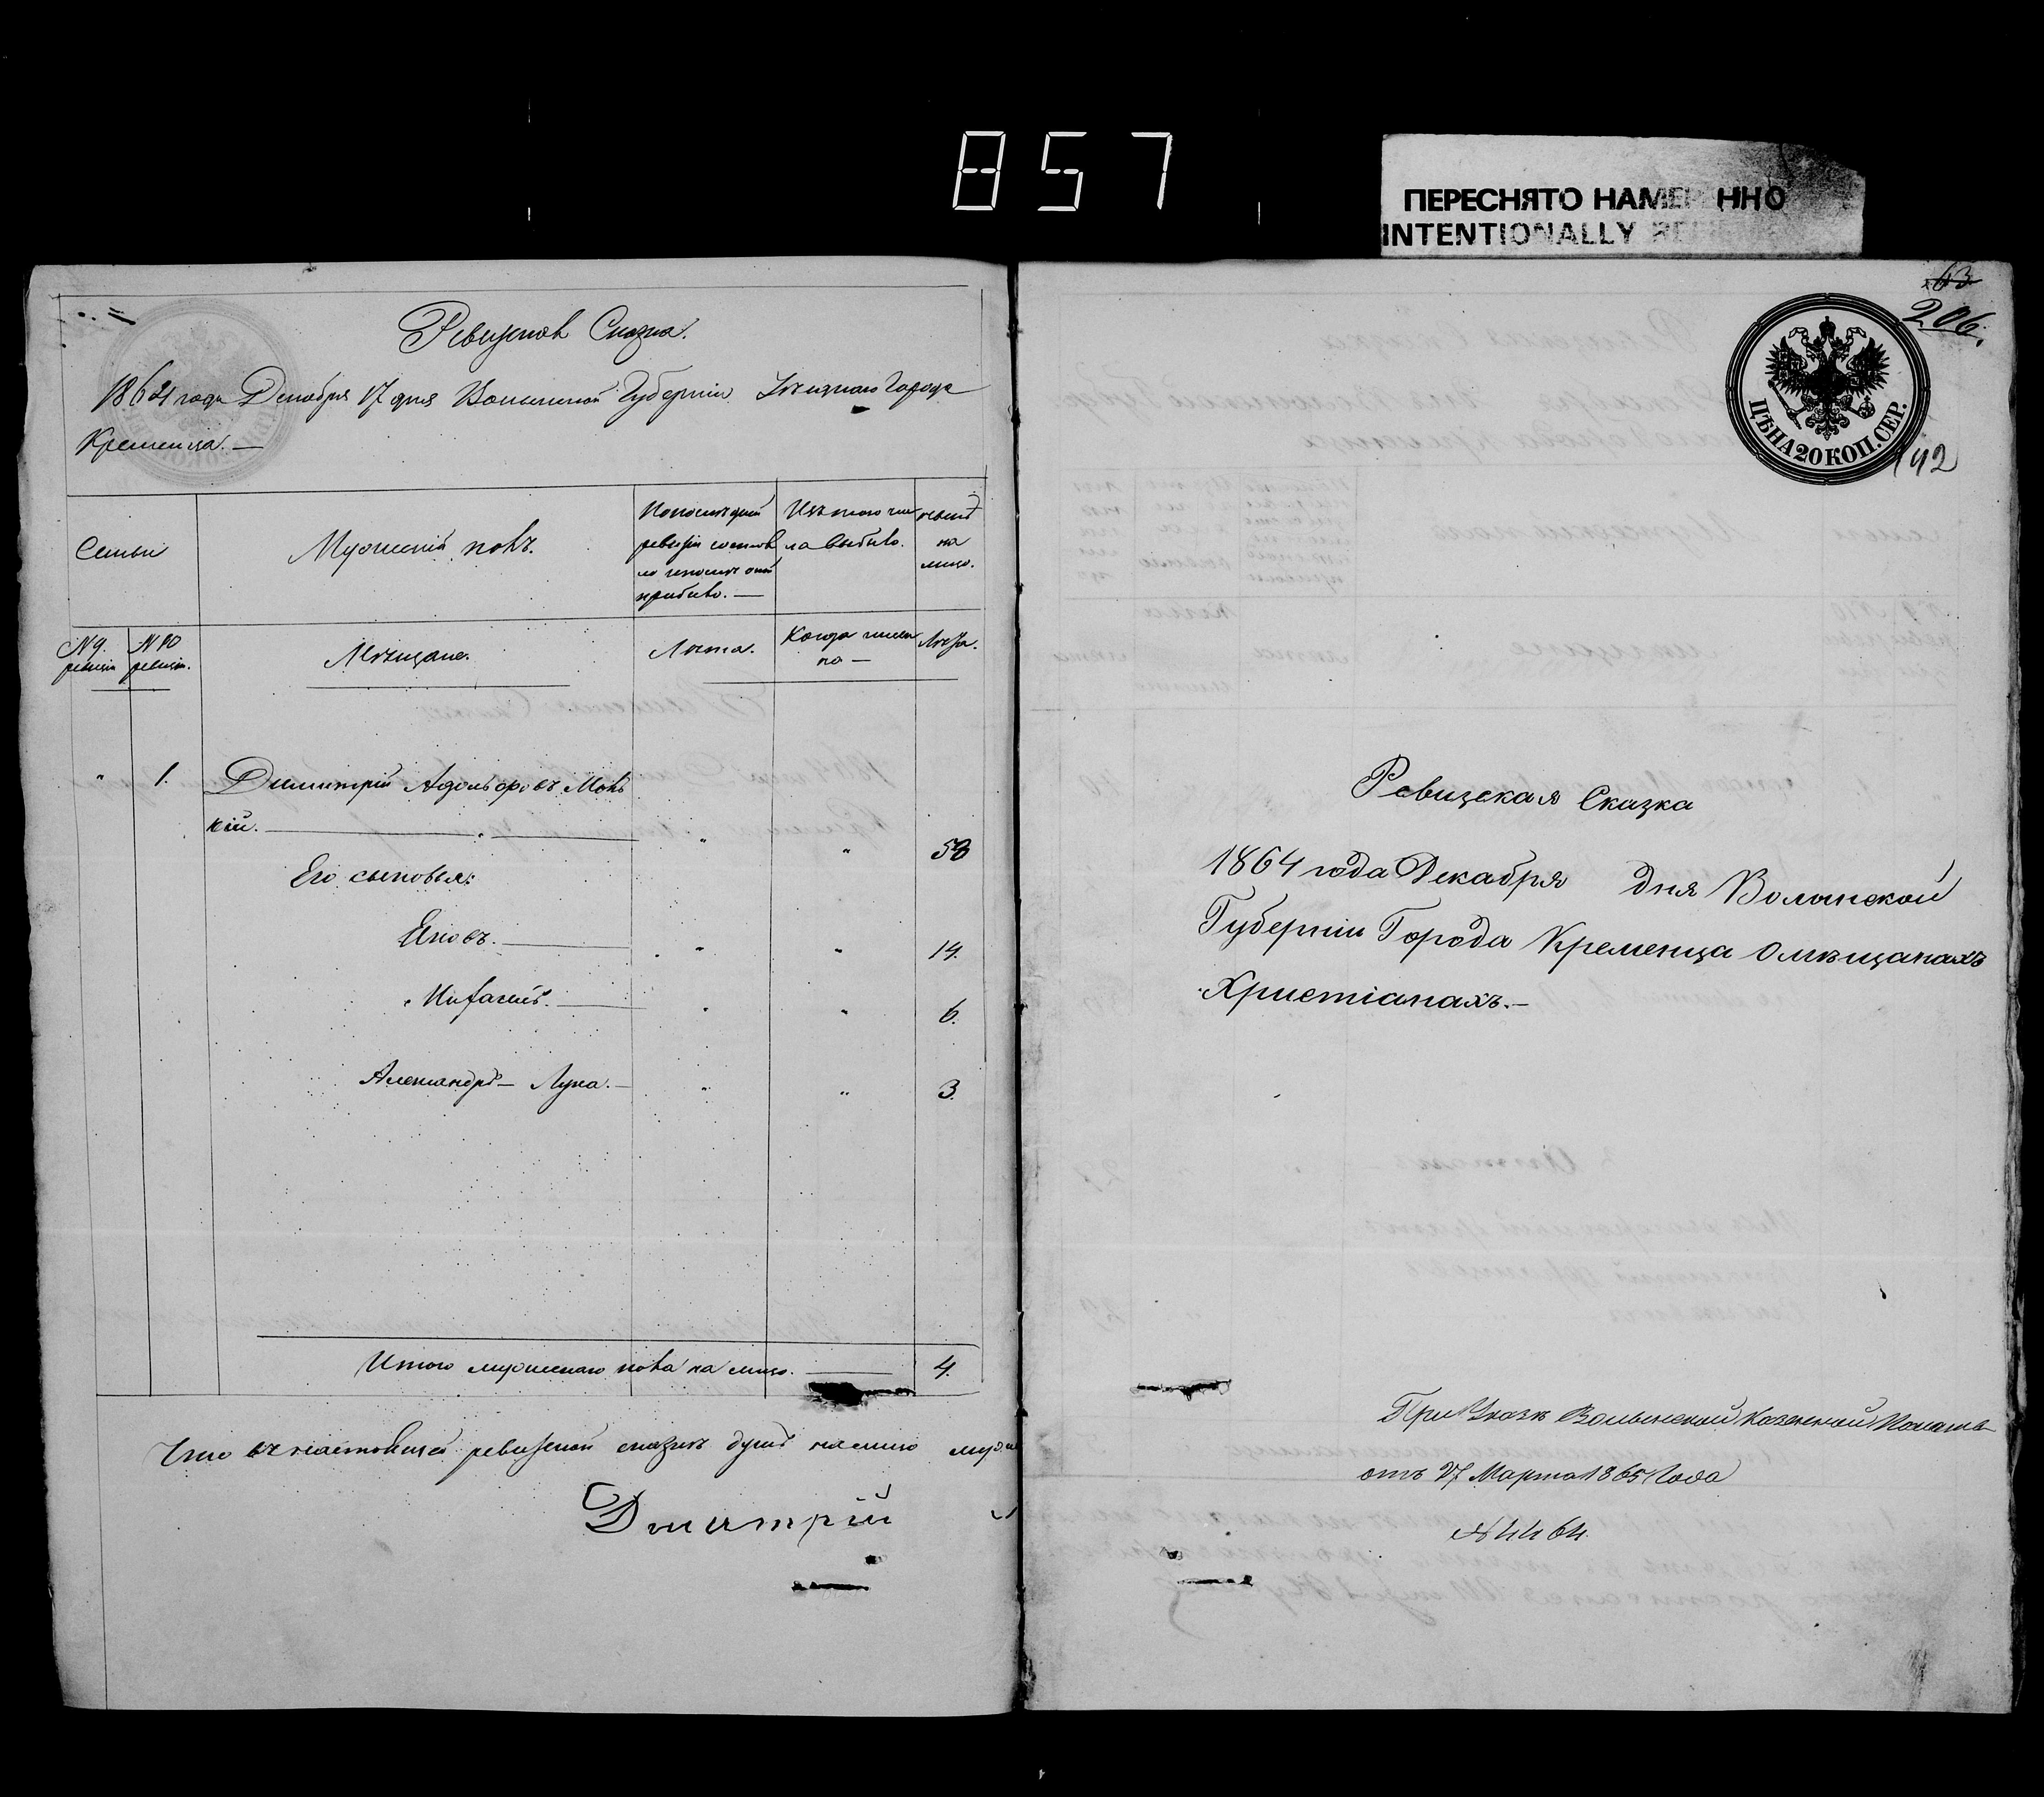 857
ПЕРЕСНЯТО НАМЕР ННО
INTENTIONALLY
Ревизская Сказка.
1864 года Декабря 17 дня Волынской Губерніи Уѣзднаго Города
Кременца. —
Семьи
Мужескій полъ.
По последней ревизіи состояло и после оной прибыло. —
Изъ того числа выбыло.
нынѣ на лицо.
№ 9. ревизіи
№ 10 ревизіи.
Мѣщане.
Лѣта.
Когда именно —
Лѣта.
" 1. Димитрій Адольфовъ
кій. — " " 58
Его сыновья:
Яковъ. — " " 14.
" " 6.
Александръ — Лука. — " " 3.
Итого мужескаго пола на лицо. — 4.
Что въ настоящей ревизской сказкѣ душъ на лицо
Дмитрій
63
206.
ЦѢНА 20 КОП. СЕР.
142
Ревизская Сказка
1864 года Декабря дня Волынской
Губерніи Города Кременца о мѣщанахъ
Христіанахъ. —
При Указѣ Волынской Казенной Палаты
отъ 27 Марта 1865 Года
№ 4464.